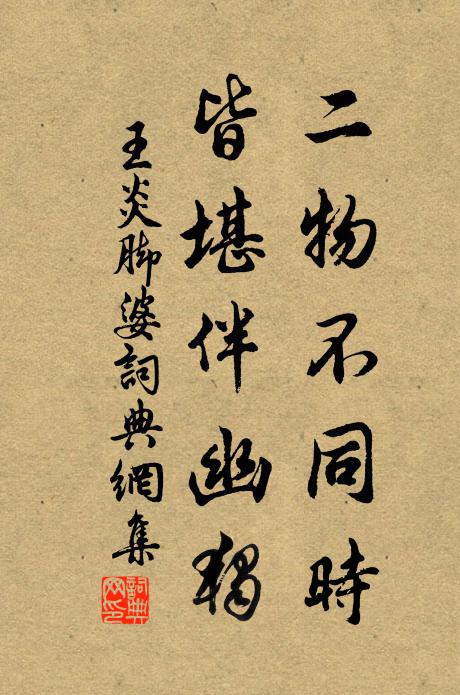 二物不同時
皆堪伴幽独
王炎脚婆詞典網集
詞典网印